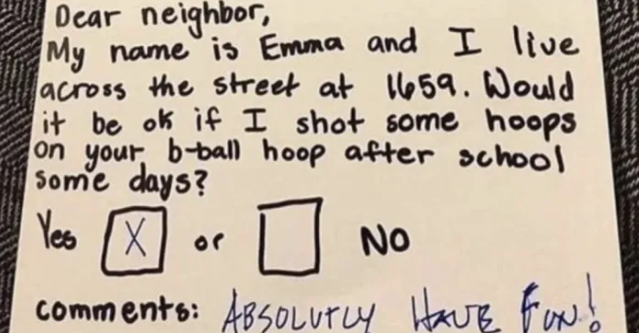 Dear neighbor,
My name is Emma and I live
across the street at 1659. Would
it be ok if I shot some hoops
on your b-ball hoop after school
some days?
Yes X or NO
comments: ABSOLUTLY HAVE FUN!